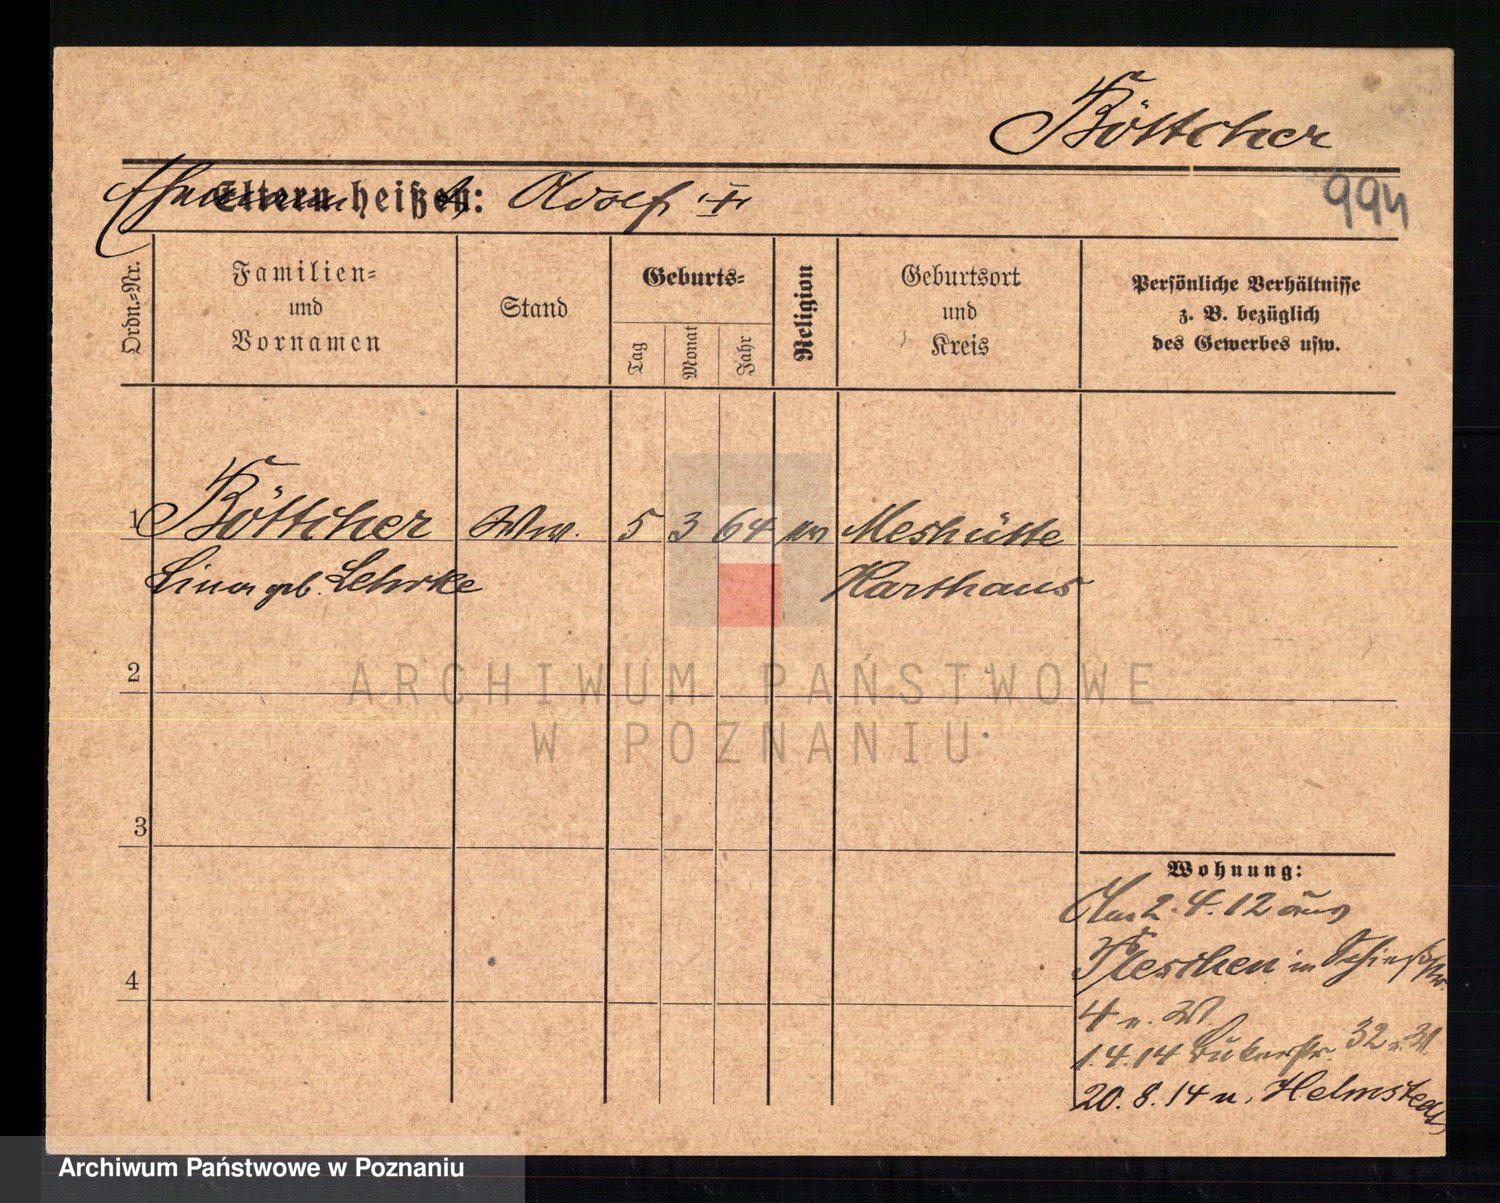 Böttcher
Eltern heißen: Adolf †
994
Ordn.-Nr.
Familien-
und
Vornamen
Stand
Geburts-
Tag
Monat
Jahr
Religion
Geburtsort
und
Kreis
Persönliche Verhältnisse
z. B. bezüglich
des Gewerbes usw.
1 Böttcher Ww. 5 3 64 Meshütte
Lina geb. Lehrke Karthaus
2
3
4
Wohnung:
2.4.12 aus
Pleschen in Schießstr.
4 u. W
1.4.14 32
20.8.14 n. Helmstedt
ARCHIWUM PAŃSTWOWE
W POZNANIU
Archiwum Państwowe w Poznaniu